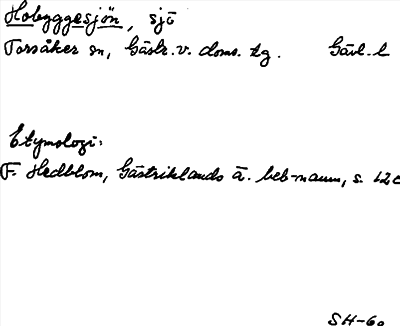 Hobyggesjön, sjö
Torsåker sn, Gästr. v. doms. tg. Gävl. l
Etymologi:
F. Hedblom, Gästriklands ä. beb-namn, s. 120
SH-60